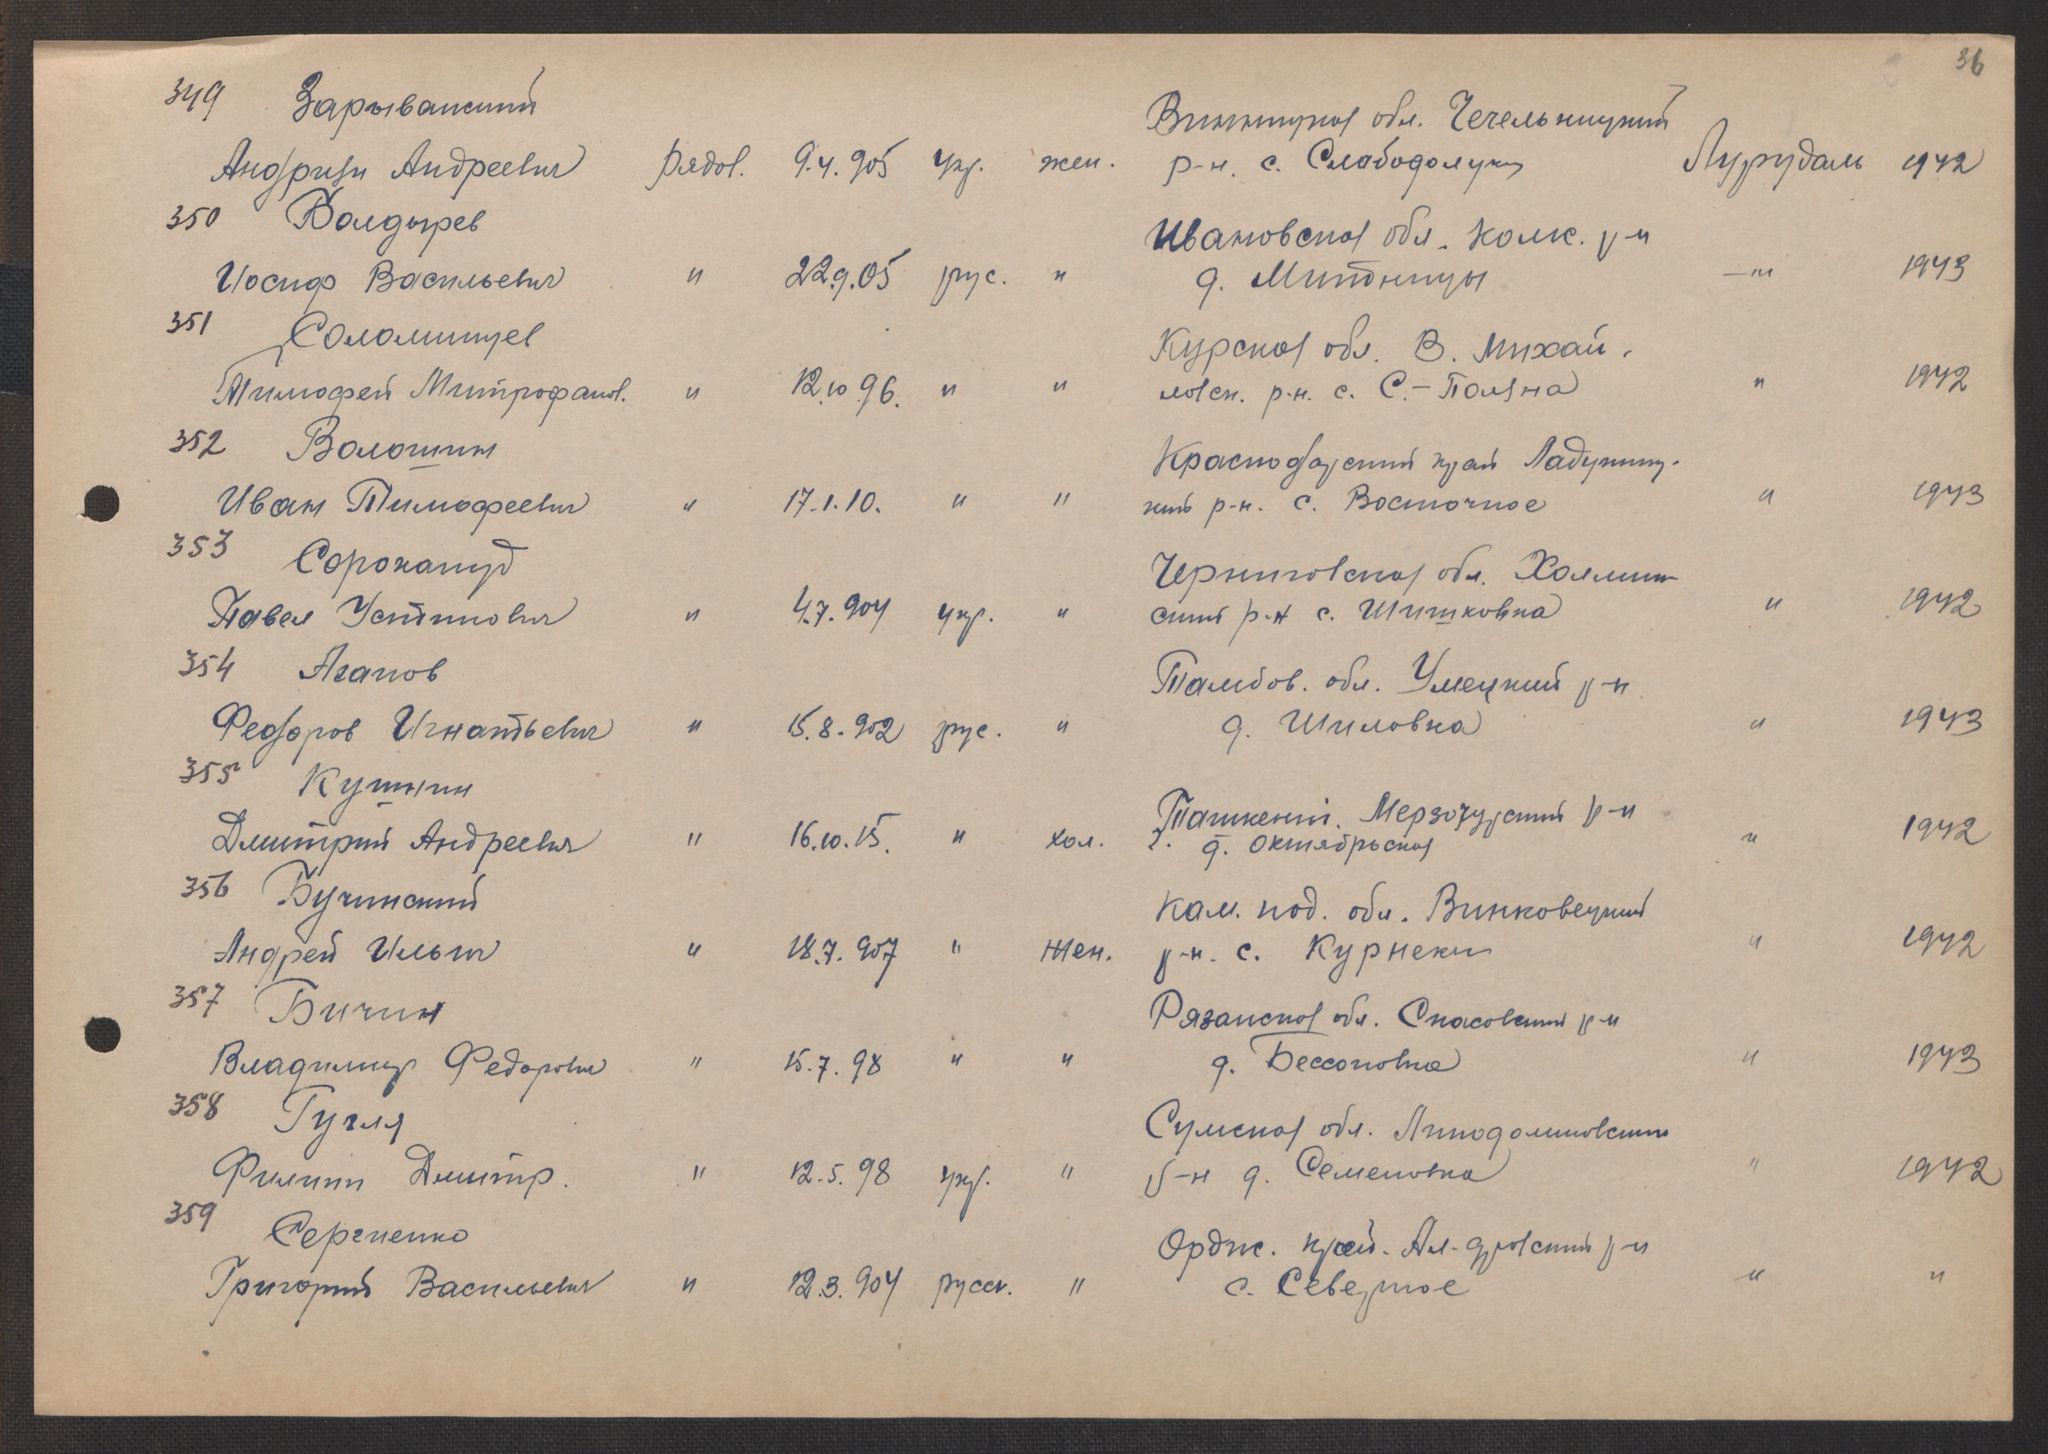 36
349 Зарыванский Винницкой обл. Чечельницкий
Андрияи Андреевич рядов. 9.4.905 укр. жен. р-н. с. Слабодолуки Лурудаль 1942
350 Болдырев Ивановской обл. Комс. р-н
Иосиф Васильевич " 22.9.05 рус. " д. Митоницы -"- 1943
351 Соломинцев Курской обл. В. Михай-
Тимофей Митрофанов. " 12.10.96. " " ловск. р-н. с. С.-Поляна " 1942
352 Волошин Краснодарский край Ладуниц-
Иван Тимофеевич " 17.1.10. " " кий р-н. с. Восточное " 1943
353 Сорокапуд Черниговской обл. Холмин-
Павел Устинович " 4.7.904 укр. " ский р-н с. Шишковка " 1942
354 Агапов Тамбов. обл. Умецкий р-н
Федоров Игнатьевич " 15.8.902 рус. " д. Шиловка " 1943
355 Кушнин Ташкент. Мерзочурский р-н
Дмитрий Андреевич " 16.10.15. " хол. г. д. Октябрьской " 1942
356 Бучинский Кам. под. обл. Винковецкий
Андрей Ильич " 18.7.907 " жен. р-н. с. Курнеки " 1942
357 Бичин Рязанской обл. Спасовский р-н
Владимир Федорович " 15.7.98 " " д. Бессоновка " 1943
358 Гугля Сумской обл. Липодолиновский
Филипп Дмитр. " 12.5.98 укр. " р-н д. Семеновка " 1942
359 Сергиенко Ордж. край. Ал-дровский р-н
Григорий Васильевич " 12.3.904 русск. " с. Северное " "